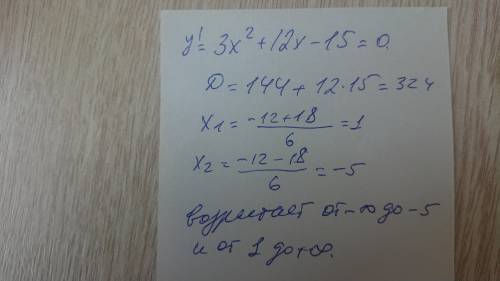 y' = 3x² + 12x − 15 = 0.
D = 144 + 12·15 = 324
x1 = (−12+18)/6 = 1
x2 = (−12−18)/6 = −5
возрастает от −∞ до −5
и от 1 до +∞.